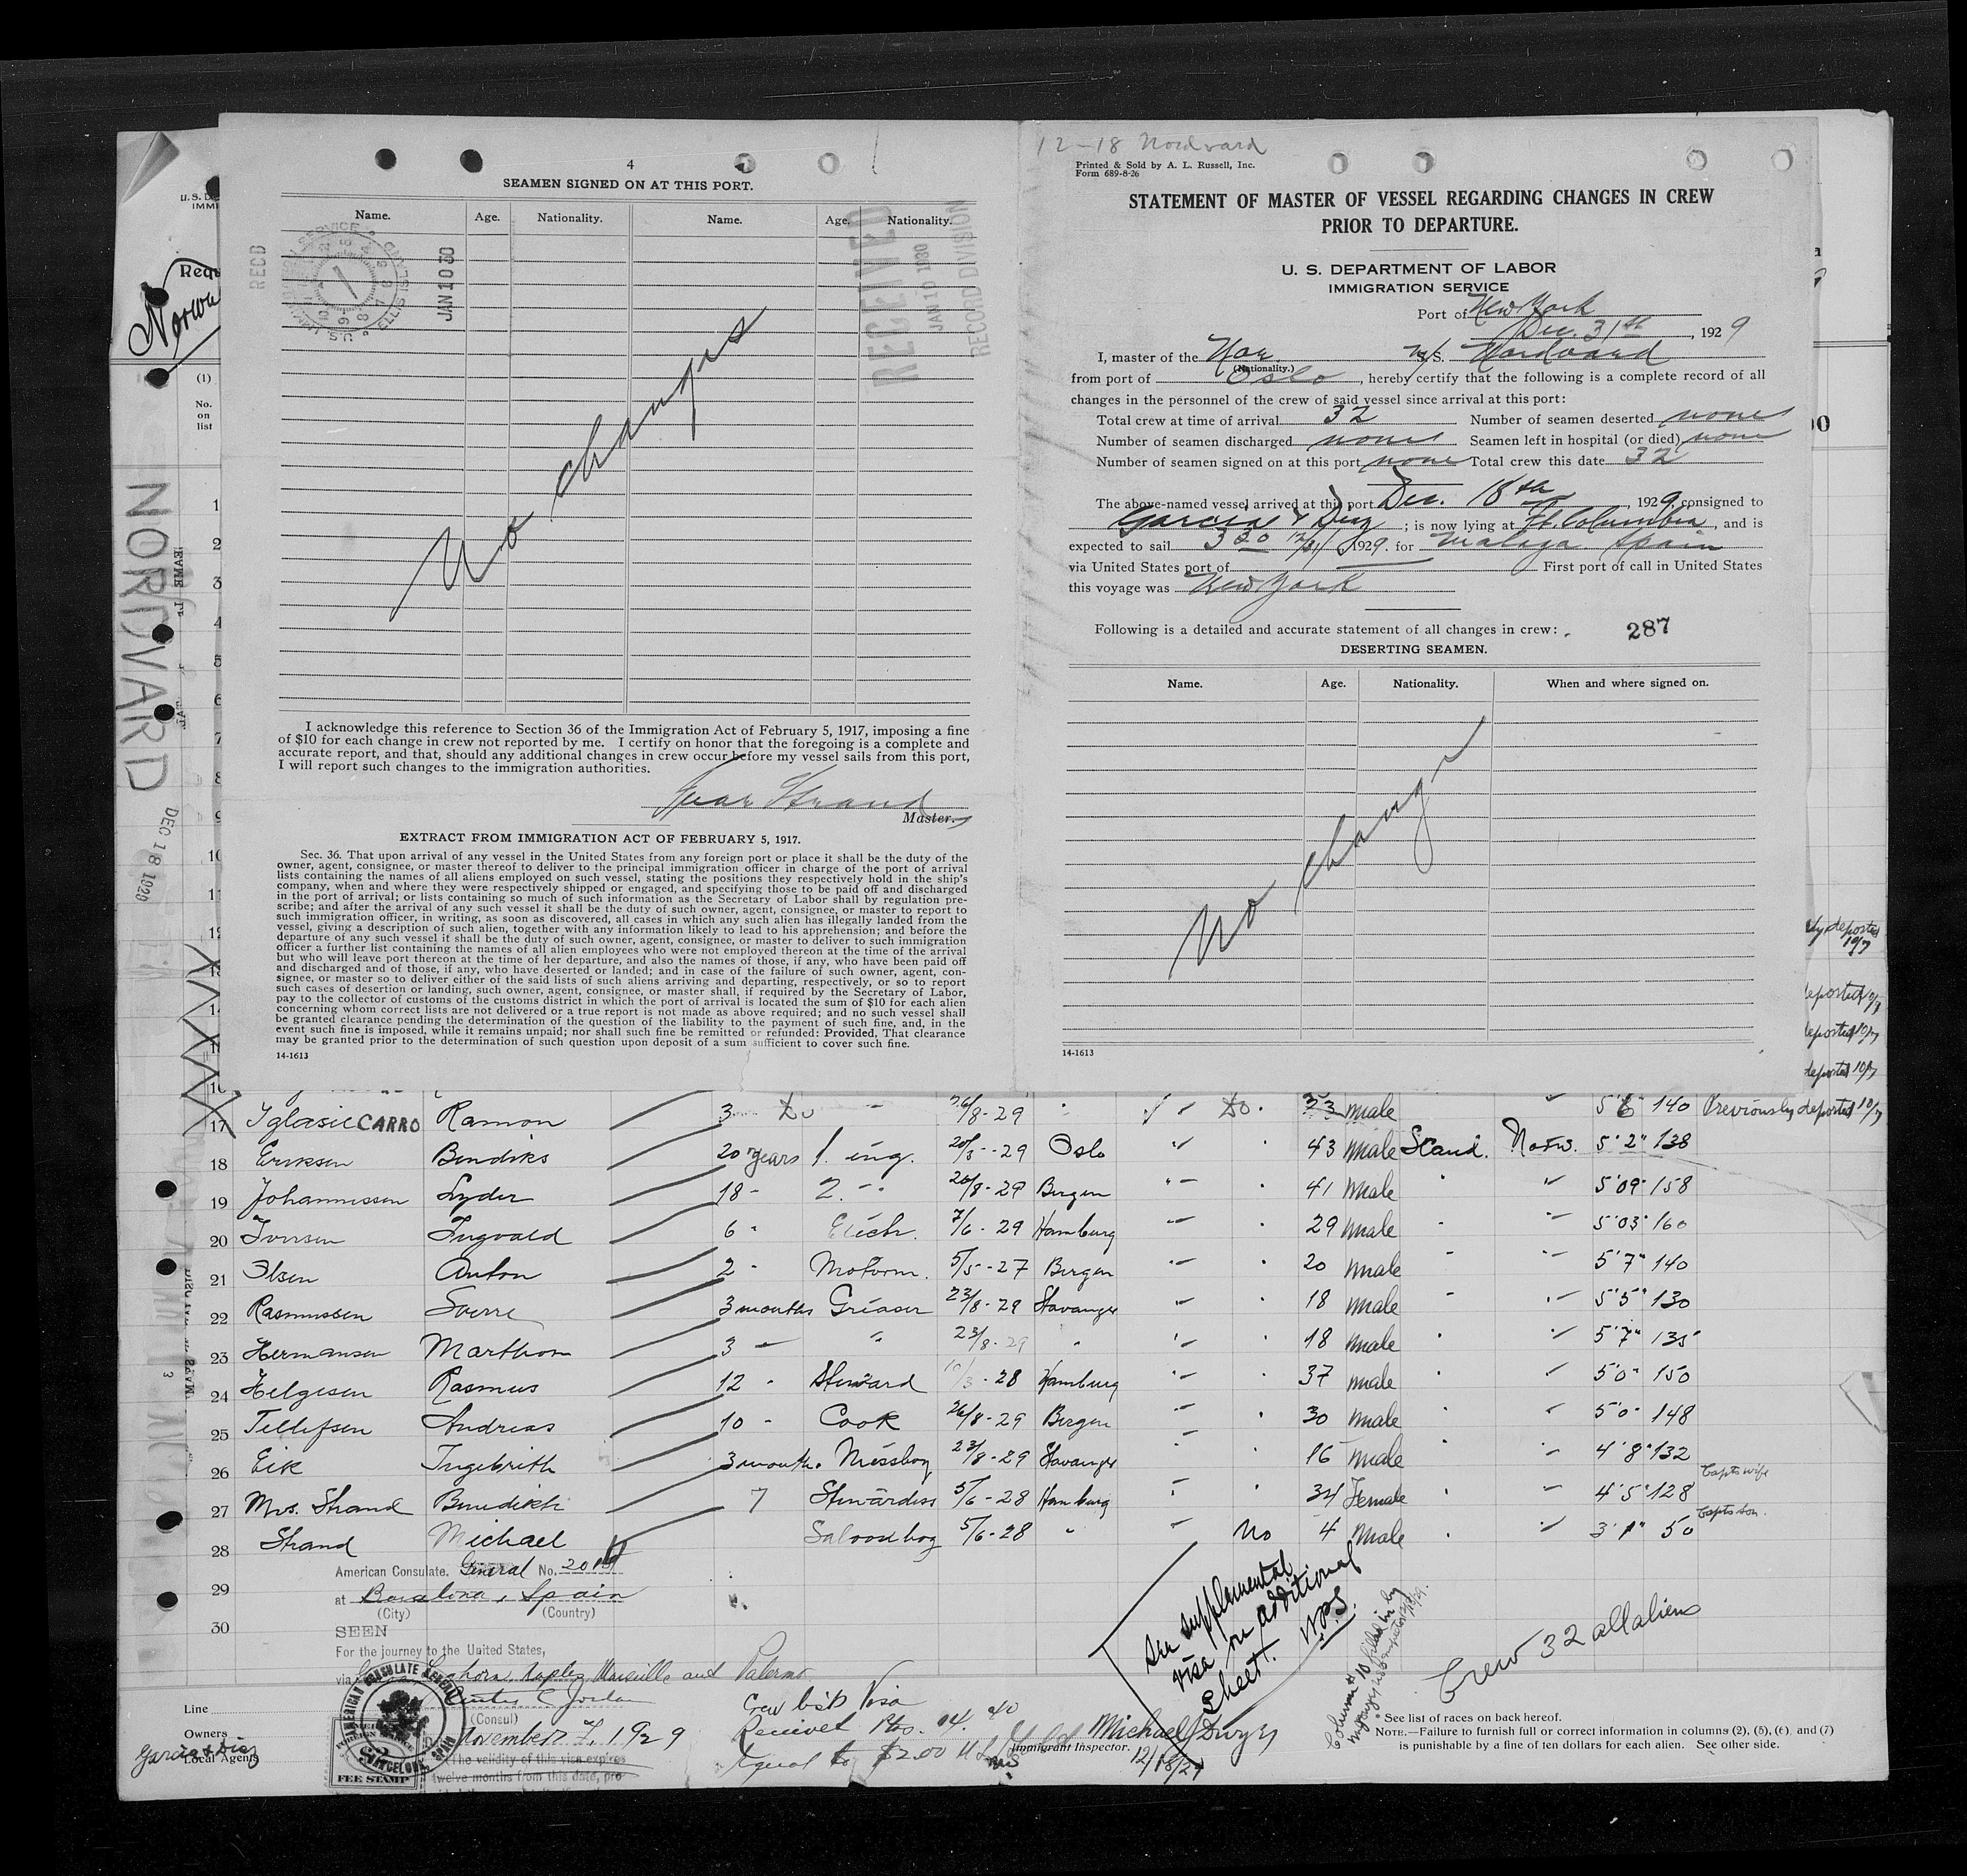 4
SEAMEN SIGNED ON AT THIS PORT.
Name. Age. Nationality. Name. Age. Nationality.
RECD
JAN 10 30
RECEIVED
JAN 10 1930
RECORD DIVISION
No changes
I acknowledge this reference to Section 36 of the Immigration Act of February 5, 1917, imposing a fine
of $10 for each change in crew not reported by me. I certify on honor that the foregoing is a complete and
accurate report, and that, should any additional changes in crew occur before my vessel sails from this port,
I will report such changes to the immigration authorities.
Strand
Master.
EXTRACT FROM IMMIGRATION ACT OF FEBRUARY 5, 1917.
Sec. 36. That upon arrival of any vessel in the United States from any foreign port or place it shall be the duty of the
owner, agent, consignee, or master thereof to deliver to the principal immigration officer in charge of the port of arrival
lists containing the names of all aliens employed on such vessel, stating the positions they respectively hold in the ship's
company, when and where they were respectively shipped or engaged, and specifying those to be paid off and discharged
in the port of arrival; or lists containing so much of such information as the Secretary of Labor shall by regulation pre-
scribe; and after the arrival of any such vessel it shall be the duty of such owner, agent, consignee, or master to report to
such immigration officer, in writing, as soon as discovered, all cases in which any such alien has illegally landed from the
vessel, giving a description of such alien, together with any information likely to lead to his apprehension; and before the
departure of any such vessel it shall be the duty of such owner, agent, consignee, or master to deliver to such immigration
officer a further list containing the names of all alien employees who were not employed thereon at the time of the arrival
but who will leave port thereon at the time of her departure, and also the names of those, if any, who have been paid off
and discharged and of those, if any, who have deserted or landed; and in case of the failure of such owner, agent, con-
signee, or master so to deliver either of the said lists of such aliens arriving and departing, respectively, or so to report
such cases of desertion or landing, such owner, agent, consignee, or master shall, if required by the Secretary of Labor,
pay to the collector of customs of the customs district in which the port of arrival is located the sum of $10 for each alien
concerning whom correct lists are not delivered or a true report is not made as above required; and no such vessel shall
be granted clearance pending the determination of the question of the liability to the payment of such fine, and, in the
event such fine is imposed, while it remains unpaid; nor shall such fine be remitted or refunded: Provided, That clearance
may be granted prior to the determination of such question upon deposit of a sum sufficient to cover such fine.
14-1613
12-18 Nordvard
Printed & Sold by A. L. Russell, Inc.
Form 689-8-26
STATEMENT OF MASTER OF VESSEL REGARDING CHANGES IN CREW
PRIOR TO DEPARTURE.
U. S. DEPARTMENT OF LABOR
IMMIGRATION SERVICE
Port of New York
Dec. 31th, 1929
I, master of the Nor. M/S. Nordvard
(Nationality.)
from port of Oslo, hereby certify that the following is a complete record of all
changes in the personnel of the crew of said vessel since arrival at this port:
Total crew at time of arrival 32 Number of seamen deserted none
Number of seamen discharged none Seamen left in hospital (or died) none
Number of seamen signed on at this port none Total crew this date 32
The above-named vessel arrived at this port Dec. 18th, 1929, consigned to
Garcia & Diaz; is now lying at Ft. Columbia, and is
expected to sail 3 30 12/31, 1929. for Malaga Spain
via United States port of First port of call in United States
this voyage was New York
Following is a detailed and accurate statement of all changes in crew:
287
DESERTING SEAMEN.
Name. Age. Nationality. When and where signed on.
No change
14-1613
Norw
(1)
No.
on
list
NORDVARD
DEC 18 1929
17 Iglasic CARRO Ramon 3 Do 26/8-29 Do. 33 male 5'6" 140 Previously deported 10/7
18 Eriksen Bendiks 20 years 1. ing. 20/3-29 Oslo 43 male Scand. Norw. 5'2" 138
19 Johannessen Lyder 18 2. 26/8-29 Bergen 41 male 5'09" 158
20 Iversen Ingvald 6 Elech. 7/6-29 Hamburg 29 male 5'03" 160
21 Olsen Anton 2 Motorm. 5/5-27 Bergen 20 male 5'7" 140
22 Rasmussen Sverre 3 months Greaser 23/8-29 Stavanger 18 male 5'5" 130
23 Hermansen Marthon 3 23/8-29 18 male 5'7" 135
24 Helgesen Rasmus 12 Steward 10/3-28 Hamburg 37 male 5'0" 150
25 Tellefsen Andreas 10 Cook 26/8-29 Bergen 30 male 5'0" 148
26 Eik Ingebrith 3 month. Messboy 23/8-29 Stavanger 16 male 4'8" 132
27 Mrs. Strand Benedikte 7 Stewardess 5/6-28 Hamburg 34 Female 4'5" 128 Capts wife
28 Strand Michael Saloonboy 5/6-28 No 4 male 3'1" 50 Capts son.
29
30
American Consulate. General No. 20
at Barcelona, Spain
(City) (Country)
SEEN
For the journey to the United States,
via Leghorn, Naples, Marseille and Palermo
Curtis C. Jordan
(Consul)
November 7, 1929
The validity of this visa expires
twelve months from this date, pro-
AMERICAN CONSULATE GENERAL BARCELONA, SPAIN
FEE STAMP
Crew list Visa
Received Pts. 14.40
Equal to $2.00 U.S.
See supplemental
visa on additional
sheet. W.P.S.
Crew 32 all aliens
Michael J Dwyer
Immigrant Inspector.
12/18/29
Line
Owners
Garcia & Diaz
Local Agents
See list of races on back hereof.
NOTE.—Failure to furnish full or correct information in columns (2), (5), (6), and (7)
is punishable by a fine of ten dollars for each alien. See other side.